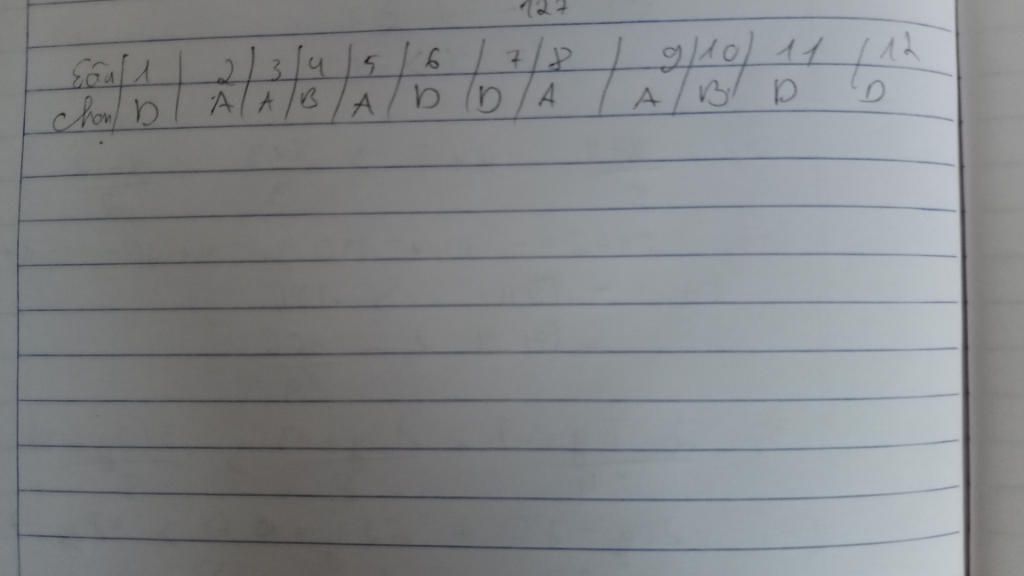 127
Câu 1 2 3 4 5 6 7 8 9 10 11 12
Chọn D A A B A D D A A B D D